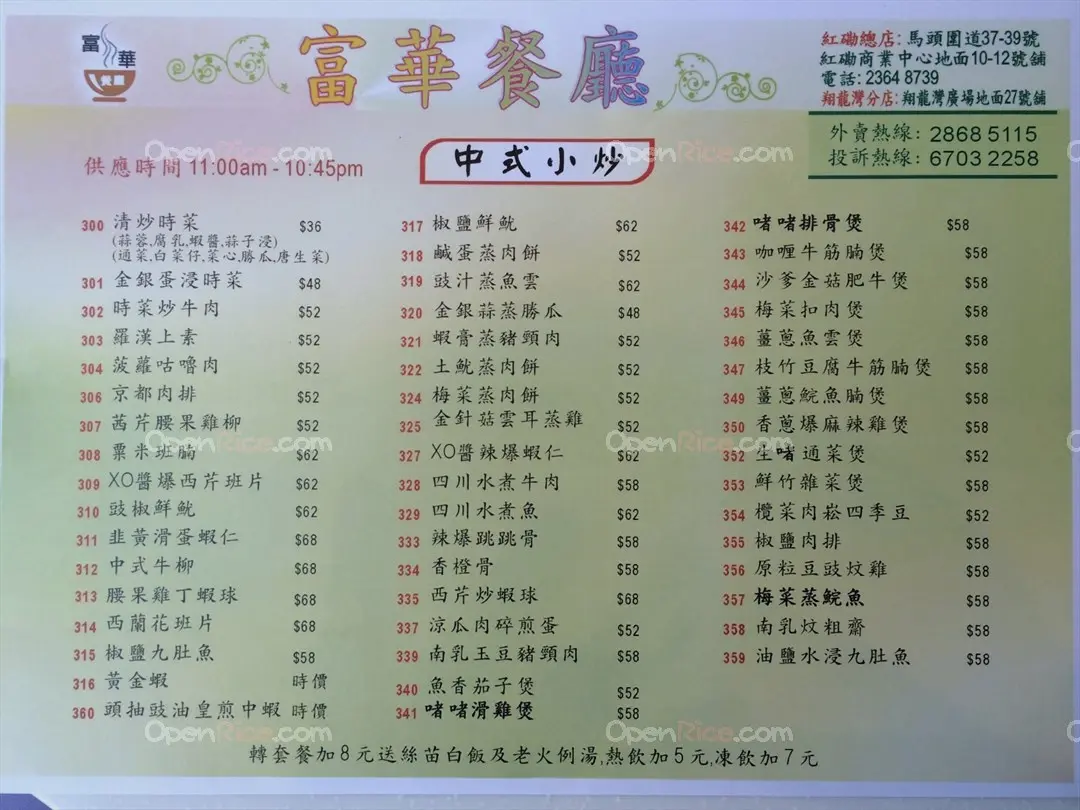 富華
富華餐廳
紅磡總店: 馬頭圍道37-39號
紅磡商業中心地面10-12號舖
電話: 2364 8739
翔龍灣分店: 翔龍灣廣場地面27號舖
外賣熱線: 2868 5115
投訴熱線: 6703 2258
供應時間 11:00am - 10:45pm
中式小炒
300 清炒時菜 $36
(蒜蓉,腐乳,蝦醬,蒜子浸)
(通菜,白菜仔,菜心,勝瓜,唐生菜)
301 金銀蛋浸時菜 $48
302 時菜炒牛肉 $52
303 羅漢上素 $52
304 菠蘿咕嚕肉 $52
306 京都肉排 $52
307 茜芹腰果雞柳 $52
308 粟米班腩 $62
309 XO醬爆西芹班片 $62
310 豉椒鮮魷 $62
311 韭黃滑蛋蝦仁 $68
312 中式牛柳 $68
313 腰果雞丁蝦球 $68
314 西蘭花班片 $68
315 椒鹽九肚魚 $58
316 黃金蝦 時價
360 頭抽豉油皇煎中蝦 時價
317 椒鹽鮮魷 $62
318 鹹蛋蒸肉餅 $52
319 豉汁蒸魚雲 $62
320 金銀蒜蒸勝瓜 $48
321 蝦膏蒸豬頸肉 $52
322 土魷蒸肉餅 $52
324 梅菜蒸肉餅 $52
325 金針菇雲耳蒸雞 $52
327 XO醬辣爆蝦仁 $62
328 四川水煮牛肉 $58
329 四川水煮魚 $62
333 辣爆跳跳骨 $58
334 香橙骨 $58
335 西芹炒蝦球 $68
337 涼瓜肉碎煎蛋 $52
339 南乳玉豆豬頸肉 $58
340 魚香茄子煲 $52
341 啫啫滑雞煲 $58
342 啫啫排骨煲 $58
343 咖喱牛筋腩煲 $58
344 沙爹金菇肥牛煲 $58
345 梅菜扣肉煲 $58
346 薑蔥魚雲煲 $58
347 枝竹豆腐牛筋腩煲 $58
349 薑蔥鯇魚腩煲 $58
350 香蔥爆麻辣雞煲 $58
352 生啫通菜煲 $52
353 鮮竹雜菜煲 $58
354 欖菜肉崧四季豆 $52
355 椒鹽肉排 $58
356 原粒豆豉炆雞 $58
357 梅菜蒸鯇魚 $58
358 南乳炆粗齋 $58
359 油鹽水浸九肚魚 $58
轉套餐加8元送絲苗白飯及老火例湯,熱飲加5元,凍飲加7元
OpenRice.com
OpenRice.com
OpenRice.com
OpenRice.com
OpenRice.com
OpenRice.com